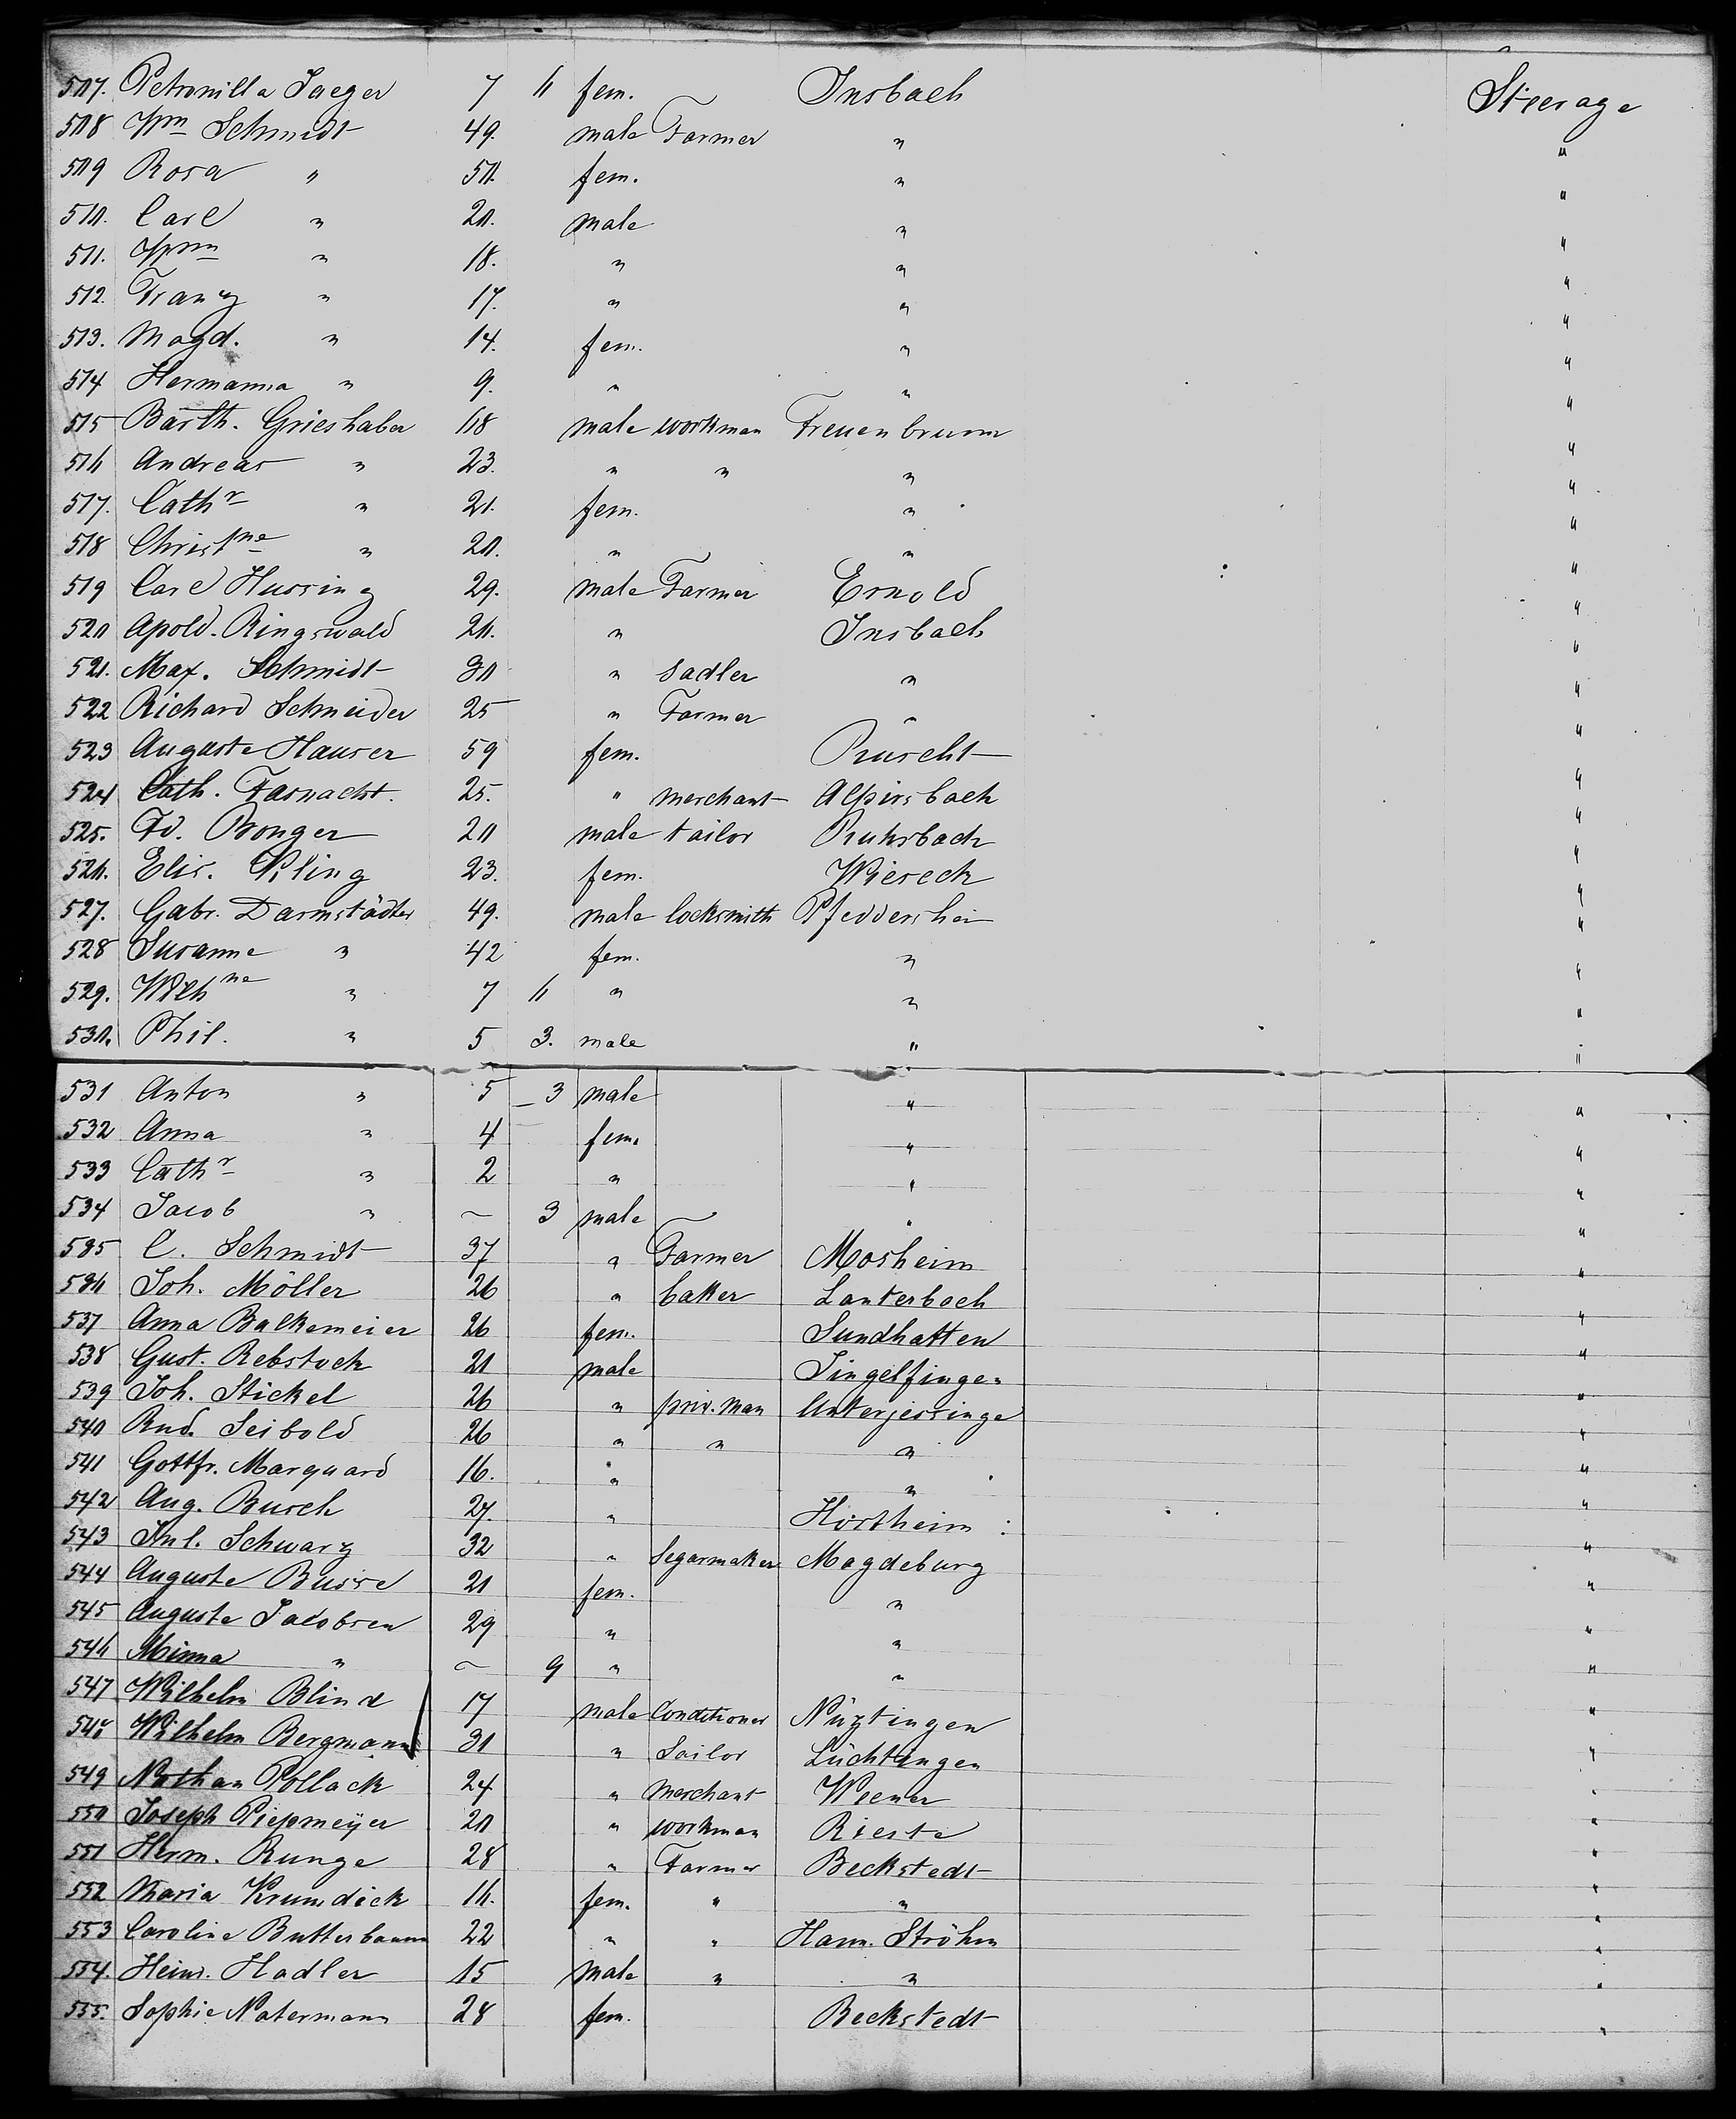 507. Petronilla Jaeger 7 6 fem. Insbach Steerage
508 Wm Schmidt 49. male Farmer " "
509 Rosa " 50. fem. " "
510. Carl " 20. male " "
511. Wm " 18. " " "
512. Franz " 17. " " "
513. Magd. " 14. fem. " "
514 Hermanna " 9. " " "
515 Barth. Grieshaber 68 male workman Freuenbrunn "
516 Andreas " 23. " " " "
517. Cathr " 21. fem. " "
518 Christine " 20. " " "
519 Carl Hussing 29. male Farmer Ernold "
520 Apold. Ringswald 26. " Insbach "
521. Max. Schmidt 30 " Sadler " "
522 Richard Schneider 25 " Farmer " "
523 Auguste Hauser 59 fem. Ruscht "
524 Cath. Fasnacht. 25. " merchant Alpirsbach "
525. Fd. Bronger 20 male tailor Ruhrbach "
526. Elis. Kling 23. fem. Wiereck "
527. Gabr. Darmstädter 49. male locksmith Pfeddershei "
528 Susanne " 42 fem. " "
529. Wilhne " 7 6 " " "
530. Phil. " 5 3. male " "
531 Anton " 5 3 male " "
532 Anna " 4 fem. " "
533 Cathr " 2 " " "
534 Jacob " ~ 3 male " "
535 C. Schmidt 37 " Farmer Mosheim "
536 Joh. Möller 26 " baker Lauterbach "
537 Anna Balkemeier 26 fem. Sundhatten "
538 Gust. Rebstock 21 male Singelfingen "
539 Joh. Stickel 26 " priv. man Unterjessinge "
540 Rud. Seibold 26 " " " "
541 Gottfr. Marquard 16. " " "
542 Aug. Busch 27. " Hortheim : "
543 Jul. Schwarz 32 " Segarmaker Magdeburg "
544 Auguste Busse 21 fem. " "
545 Auguste Jacobsen 29 " " "
546 Minna " ~ 9 " " "
547 Wilhelm Blind 17 male Conditioner Nürtingen "
548 Wilhelm Bergmann 31 " Sailor Lüchtingen "
549 Nathan Pollack 24 " merchant Weener "
550 Joseph Piepmeÿer 20 " workman Rieste "
551 Herm. Runge 28 " Farmer Beckstedt "
552 Maria Krumdick 16. fem. " " "
553 Caroline Butterbaum 22 " " Hann. Ströhen "
554. Heinr. Hadler 15 male " " "
555. Sophie Natermann 28 fem. Beckstedt "